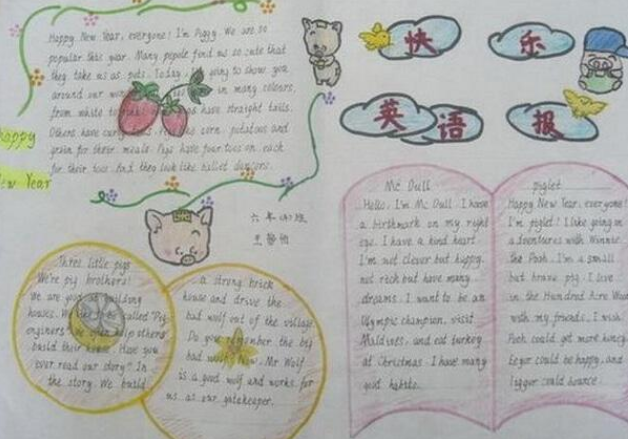 Happy New Year, everyone! I'm Piggy. We are so
popular this year. Many pepole find us so cute that
they take us as pets. Today, going to show you
around our in many colours,
from white to have straight tails.
Others have corn, potatoes and
grain for their meals. Pigs have four toes on each
for their toes. And they look like ballet dancers.
Happy
New Year
快乐
英语报
六年
Three little pigs
We're pig brothers!
We are building
houses. called "Pig
enginers" help others
build their house. Have you
ever read our story? In
the story. We build
a strong brick
house and drive the
bad wolf out of the village.
Do you remember the big
bad Now, Mr Wolf
is a good wolf and works for
us as our gatekeeper.
Mc Dull
Hello, I'm Mc Dull. I have
a birthmark on my right
eye. I have a kind heart.
I'm not clever but happy.
not rich but have many
dreams. I want to be an
Olympic champion, visit
Maldives, and eat turkey
at Christmas. I have many
good habits.
piglet
Happy New Year, everyone!
I'm piglet! I like going on
adventures with Winnie
the Pooh. I'm a small
but brave pig. I live
in the Hundred Acre Wood
with my friends. I wish
Pooh could get more honey
Eeyor could be happy, and
Tigger could bounce.